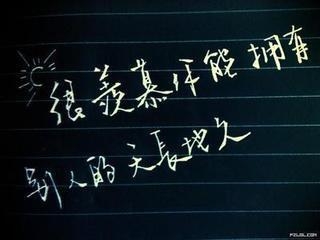 很羡慕你能拥有
别人的天長地久
PZLGL.COM